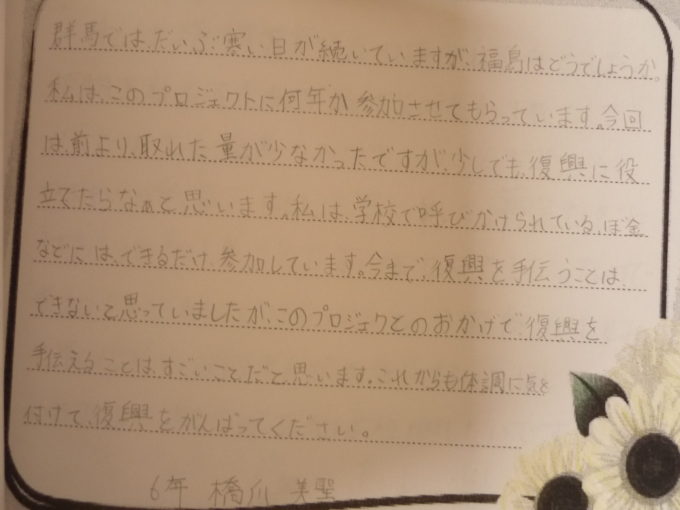 群馬では、だいぶ寒い日が続いていますが、福島はどうでしょうか。
私は、このプロジェクトに何年か参加させてもらっています。今回
は、前より、取れた量が少なかったですが、少しでも、復興に役
立てたらなぁと思います。私は、学校で呼びかけられている、ぼ金
などには、できるだけ、参加しています。今まで、復興を手伝うことは
できないと思っていましたが、このプロジェクとのおかげで、復興を
手伝えることは、すごいことだと思います。これからも体調に気を
付けて復興をがんばってください。
6年 橋爪 美聖